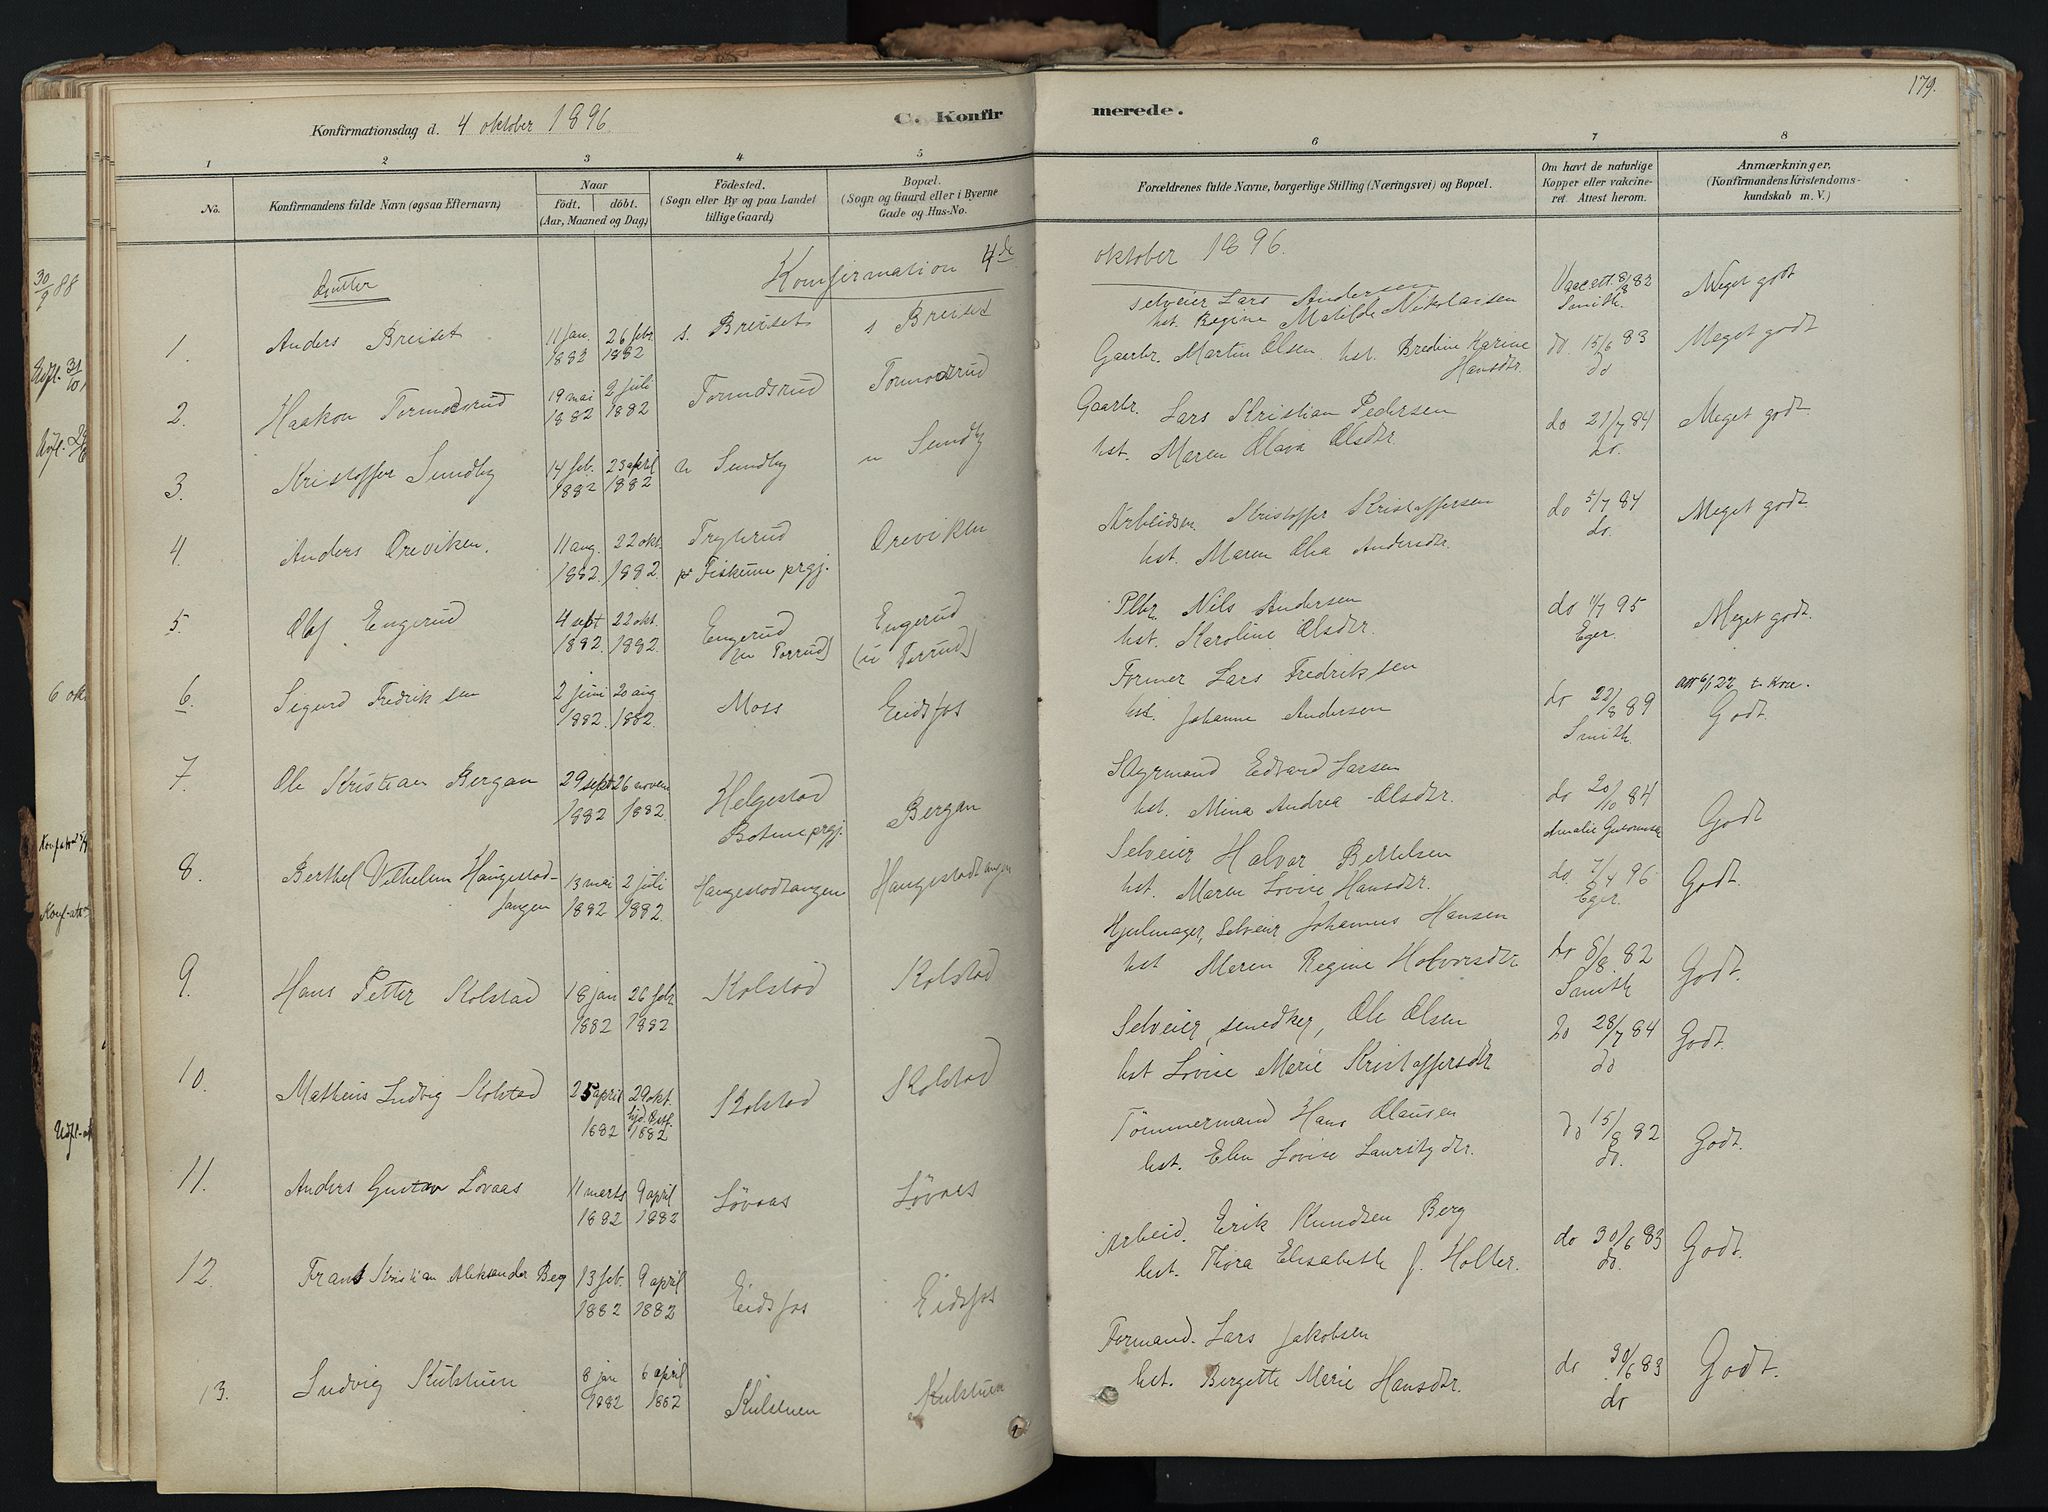 179.
Konfirmationsdag d. 4 oktober 1896.
C. Konfirmerede.
1 2 3 4 5 6 7 8
No.
Konfirmandens fulde Navn (ogsaa Efternavn)
Naar
födt. döbt.
(Aar, Maaned og Dag)
Födested.
(Sogn eller By og paa Landet
tillige Gaard)
Bopæl.
(Sogn og Gaard eller i Byerne
Gade og Hus-No.
Forældrenes fulde Navne, borgerlige Stilling (Næringsvei) og Bopæl.
Om havt de naturlige
Kopper eller vakcine-
ret. Attest herom.
Anmærkninger.
(Konfirmandens Kristendoms-
kundskab m. V.)
Gutter
Konfirmation 4de oktober 1896.
1. Anders Breiset 11 jan. 1882 26 febr. 1882 s. Breiset s Breiset
selveier Lars Andersen
hst. Regine Matilde Nikolaisen
Vaccatt. 8/8 82
Smith
Meget godt
2. Haakon Tormodsrud 19 mai 1882 2 juli 1882 Tormodsrud Tormodsrud
Gaarbr. Martin Olsen hst. Bredine Karine
Hansdtr.
do 15/6 83
do
Meget godt
3. Kristoffer Sundby 14 feb. 1882 23 april 1882 n Sundby n Sundby
Gaarbr. Lars Kristian Pedersen
hst. Maren Olava Olsdtr.
do 21/7 84
do.
Meget godt.
4. Anders Oreviken. 11 aug. 1882. 22 okt. 1882 Trytirud
pr Fiskum prgj. Oreviken
Arbeidsm Kristoffer Kristoffersen
hst. Maren Olea Andersdtr.
do 5/7 84
do.
Meget godt.
5. Olaf Engerud 4 sept 1882 22 okt. 1882. Engerud
(u Torrud) Engerud
(u Torrud)
Plbr. Nils Andersen
hst. Karoline Olsdtr.
do 11/7 95
Eger.
Meget godt.
6. Sigurd Fredriksen 2 juni 1882. 20 aug 1882. Moss Eidsfos
Former Lars Fredriksen
hst. Johanne Andersen
do 22/8 89
Smith.
Godt.
7. Ole Kristian Bergan 29 sept 1882 26 novem 1882. Helgestad
Botne prgj. Bergan
Styrmand Edvard Larsen
hst. Mina Andrea Olsdtr.
do 20/10 84
Godt
8. Berthel Vilhelm Haugestad-
tangen 13 mai 1882 2 juli 1882. Haugestadtangen Haugestadtangen
Selveier Halvor Bertelsen
hst. Maren Lovise Hansdtr.
do. 7/4 96
Eger.
Godt.
9. Hans Petter Kolstad 18 jan 1882 26 febr 1882 Kolstad Kolstad
Hjulmager, Selveier Johannes Hansen
hst Maren Regine Halvorsdtr
do 8/8. 82
Smith
Godt.
10. Matheus Ludvig Kolstad 25 april 1882 29 okt. 1882 Kolstad Kolstad
Selveier, snedker, Ole Olsen
hst Lovise Marie Kristoffersdtr
do 28/7 84
do
Godt.
11. Anders Gustav Lövaas 11 marts 1882 9 april 1882 Lövaas Lövaas
Tömmermand Hans Olausen
hst. Elen Lovise Lauritzdtr.
do 15/8 82
do.
Godt.
12. Frans Kristian Aleksander Berg 13 feb. 1882 9 april 1882 Eidsfos Eidsfos
Arbeid. Erik Knudsen Berg
hst. Thora Elisabeth f. Holter.
do 30/6 83
do.
Godt.
13. Ludvig Kulstuen 8 jan 1882 6 april 1882 Kulstuen Kulstuen
Formand. Lars Jakobsen
hst. Bergette Marie Hansdtr.
do 30/6 83
do
Godt.